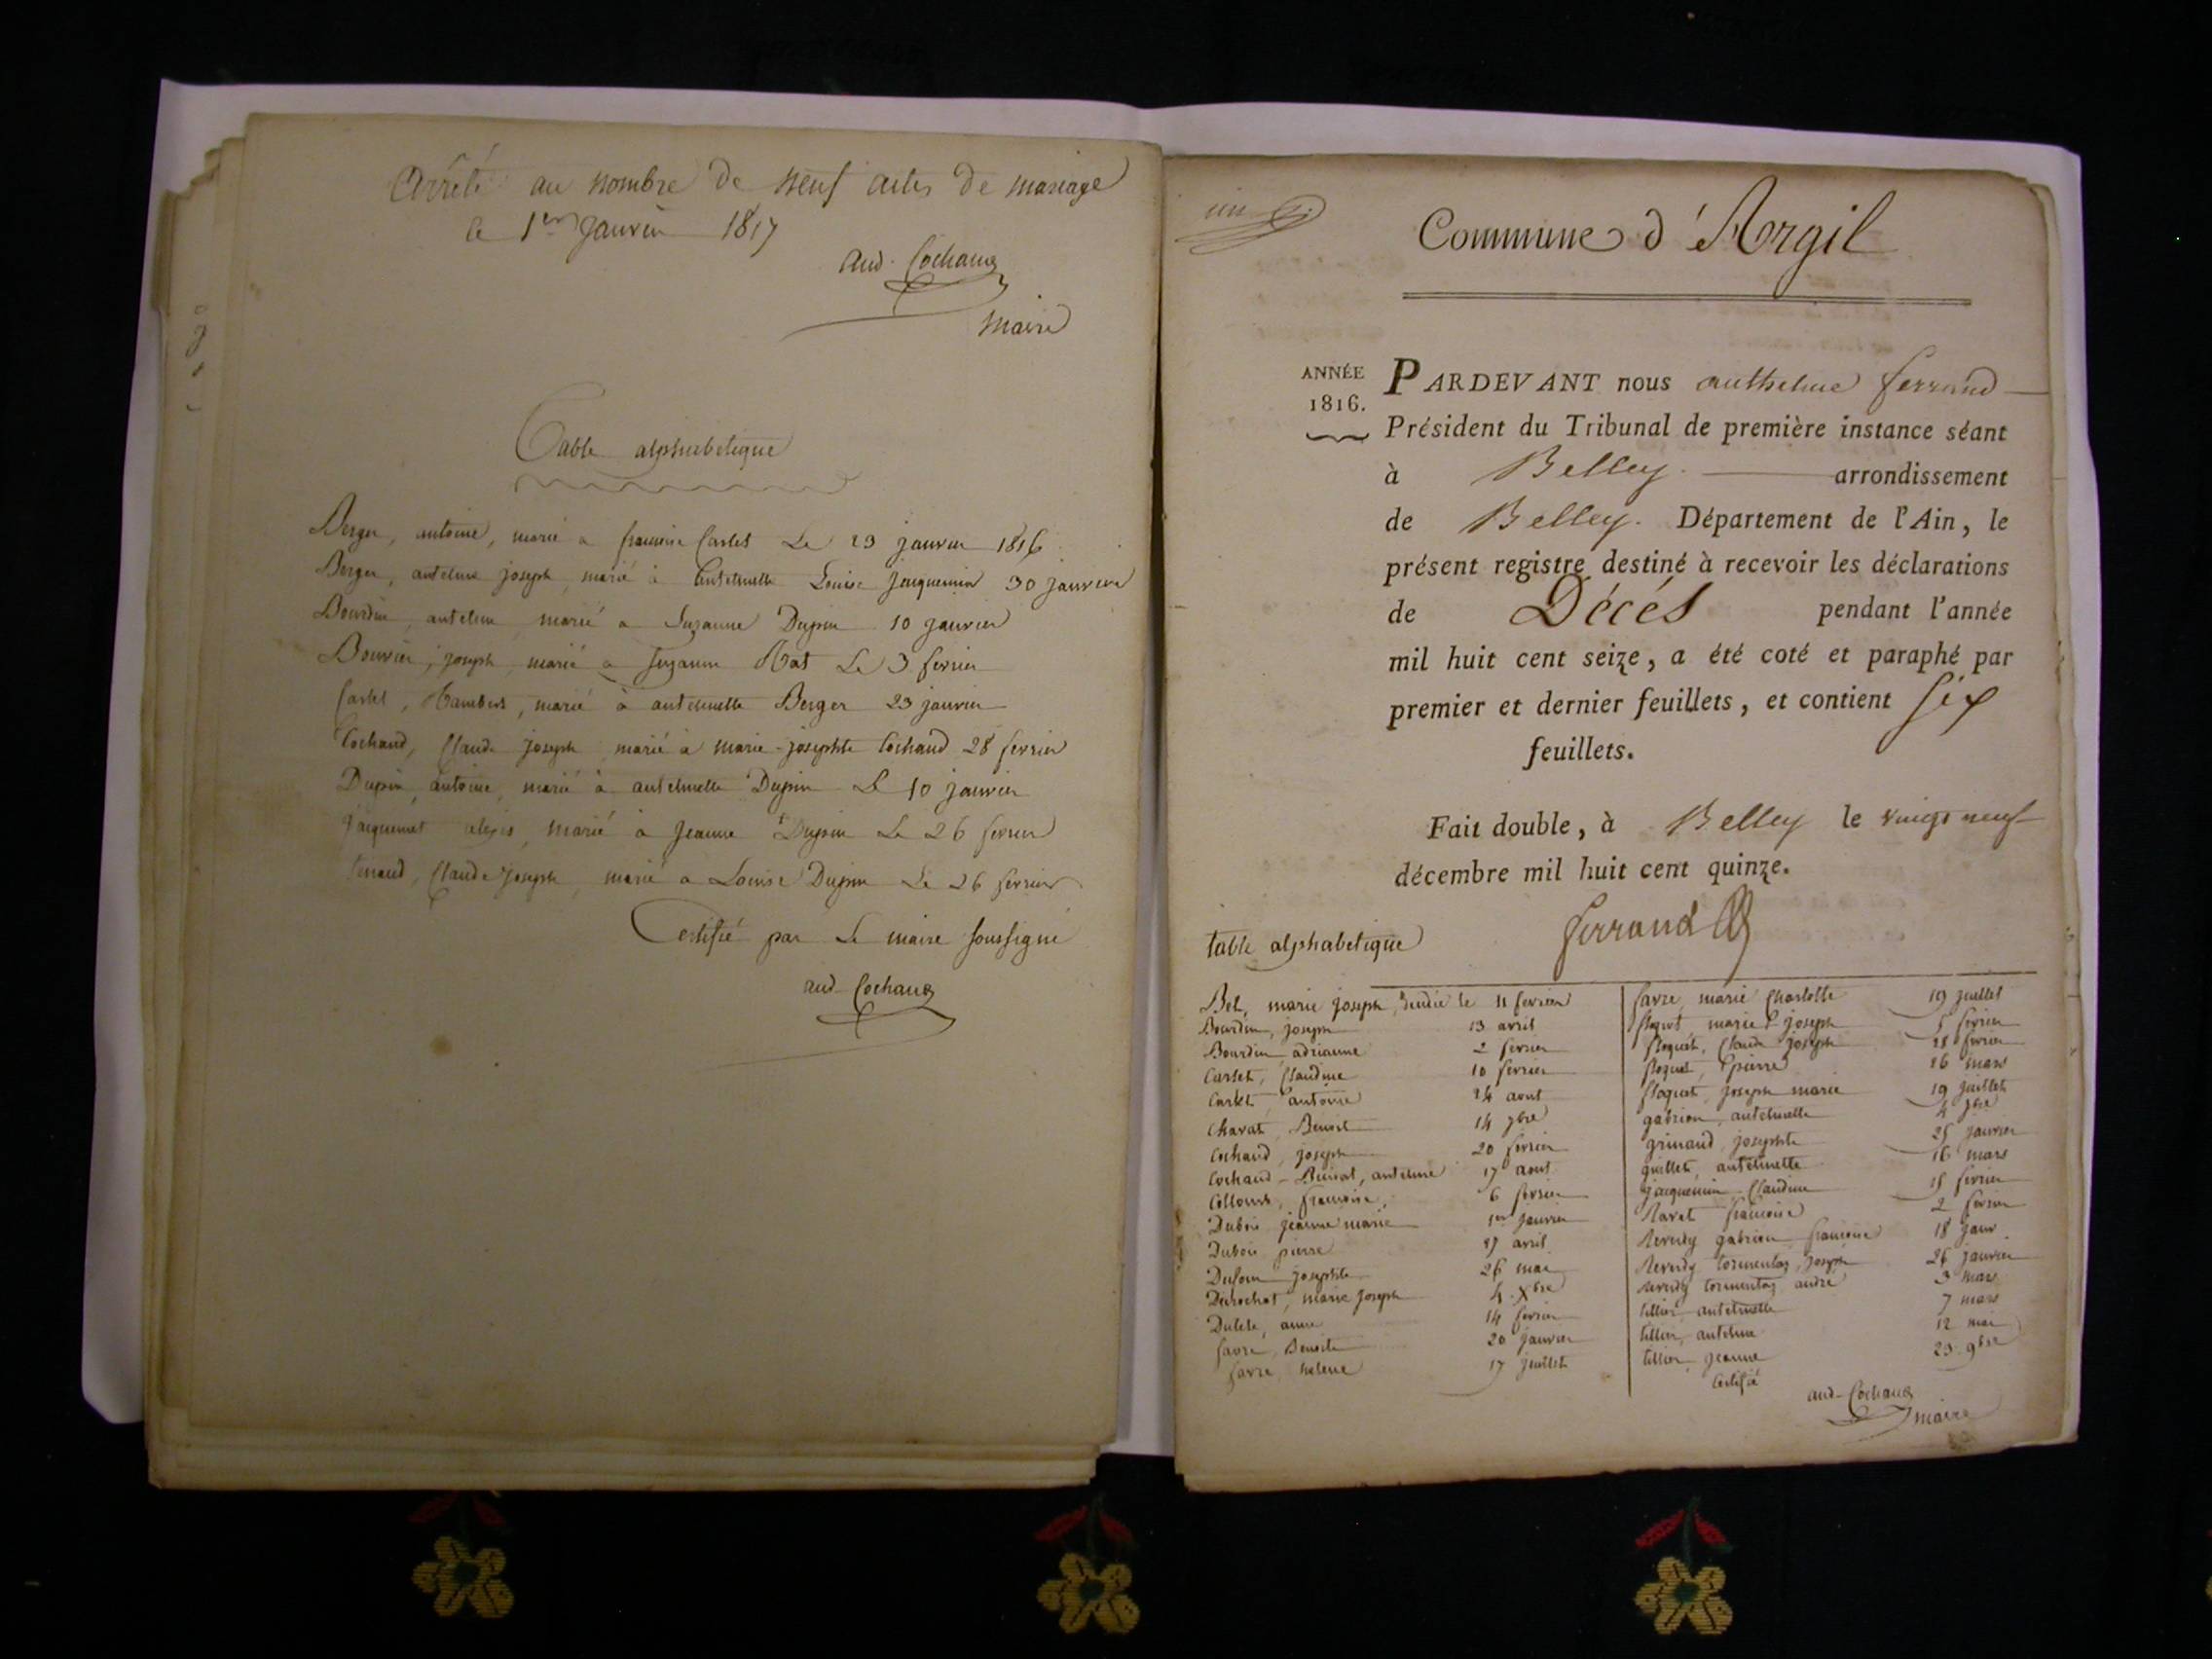 Arrêté au nombre de neuf actes de mariage
le 1er Janvier 1817
And. Cochand
Maire
Table alphabetique
Berger, antoine, marié a francoise Carlet Le 23 janvier 1816
Berger, antelme joseph marié à antelmette Louise jacquemin 30 janvier
Bourdin, antelme marié a Suzanne Dupin 10 janvier
Bouvier, joseph marié a Suzanne Rat Le 3 fevrier
Carlet, Rambert, marié à antelmette Berger 23 janvier
Cochand, Claude joseph marié à marie-josephte Cochand 28 fevrier
Dupin, antoine, marié à antelmette Dupin Le 10 janvier
Jacquemet alexis, marié à Jeanne Dupin Le 26 fevrier
Claude joseph marié a Louise Dupin Le 26 fevrier
Certifié par Le maire soussigné
And Cochand
un
Commune d'Argil
ANNÉE
1816.
PARDEVANT nous anthelme ferrand
Président du Tribunal de première instance séant
à Belley. arrondissement
de Belley. Département de l'Ain, le
présent registre destiné à recevoir les déclarations
de Décés pendant l'année
mil huit cent seize, a été coté et paraphé par
premier et dernier feuillets, et contient six
feuillets.
Fait double, à Belley le vingt neuf
décembre mil huit cent quinze.
ferrand
table alphabetique
Bel, marie joseph, le 11 fevrier
Bourdin, joseph 13 avril
Bourdin adrianne 2 fevrier
Carlet, Claudine 10 fevrier
Carlet antoine 24 aout
Charat Benoit 14 7bre
Cochand, joseph 20 fevrier
Cochand - antelme 17 aout
Colloud, francoise 6 fevrier
Dubois jeanne marie 1er janvier
Dubois pierre 27 avril
Dufour josephte 26 mai
Durochat, marie joseph 4 Xbre
anne 14 fevrier
favre, Benoite 20 janvier
favre helene 17 juillet
favre marie Charlotte 19 juillet
floquet marie joseph 5 fevrier
floquet, Claude joseph fevrier
floquet, pierre 26 mars
floquet joseph marie 19 juillet
gabrion antelmette 4 7bre
grinand josephte 25 janvier
guillet antelmette 16 mars
jacquemin Claudine 15 fevrier
Ravet francoise 2 fevrier
Reverdy gabrion francoise 18 janv.
Reverdy tormentaz, joseph 26 janvier
Reverdy tormentaz andré 3 mars
tillier antelmette 7 mars
tillier, antelme 12 mai
tillier jeanne 23 9bre
Certifié
And-Cochand
maire